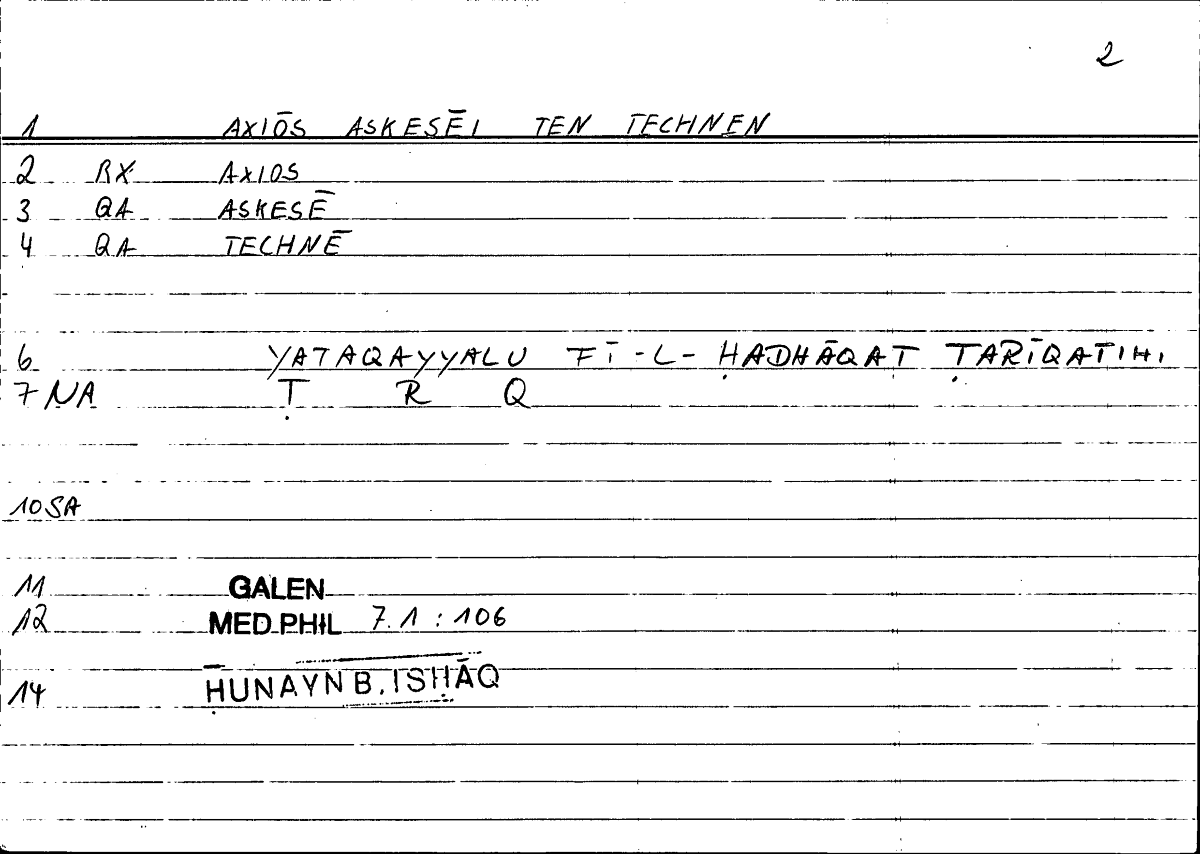 2
1 AXIŌS ASKESĒI TEN TECHNEN
2 RX AXIOS
3 QA ASKESĒ
4 QA TECHNĒ
6 YATAQAYYALU FĪ-L-ḤADHĀQAT ṬARĪQATIHI
7 NA Ṭ R Q
10 SA
11 GALEN
12 MED.PHIL 7.1 : 106
14 ḤUNAYN B. ISḤĀQ